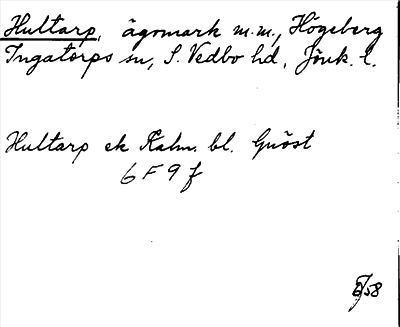 Hultarp, ägomark m.m., Högeberg
Ingatorps sn, S. Vedbo hd, Jönk. l.
Hultarp ek Kalm. bl. Gnöst
6 F 9 f